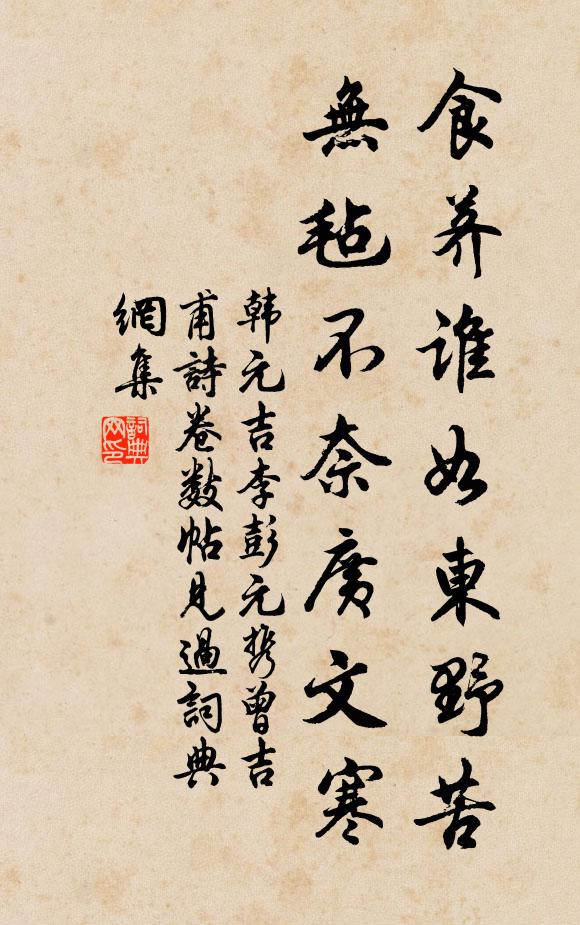 食荠誰如東野苦
無毡不奈廣文寒
韩元吉李彭元携曾吉
甫詩卷数帖見過詞典
網集
詞典
网印